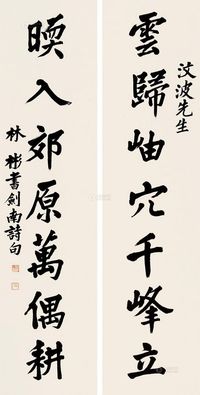 汶波先生
雲歸岫穴千峰立
暖入郊原萬偶耕
林彬書劍南詩句